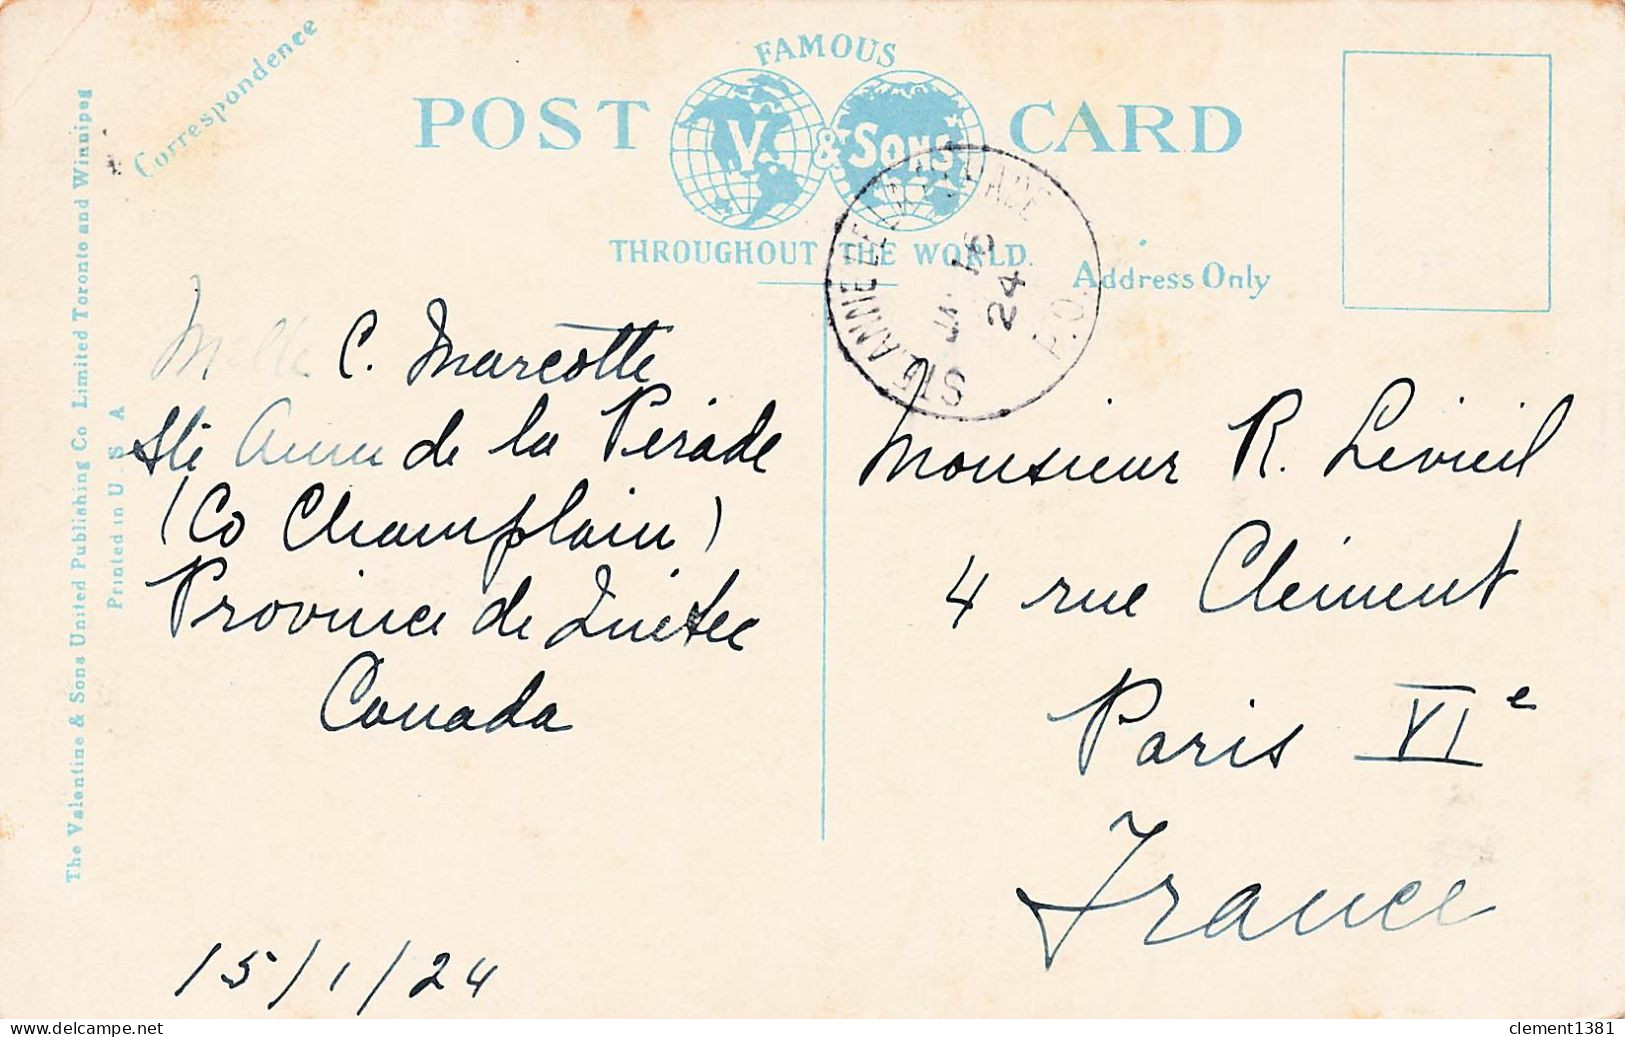 Correspondence
FAMOUS
POST CARD
V. & SONS
THROUGHOUT THE WORLD.
Address Only
STE. ANNE DE LA PERADE
JA 16
24
P.Q.
Melle C. Marcotte
Ste Anne de la Pérade
(Co Champlain)
Province de Québec
Canada
15/1/24
Monsieur R. Levieil
4 rue Clément
Paris VIe
France
The Valentine & Sons United Publishing Co Limited Toronto and Winnipeg
Printed in U S A
delcampe.net
clement1381